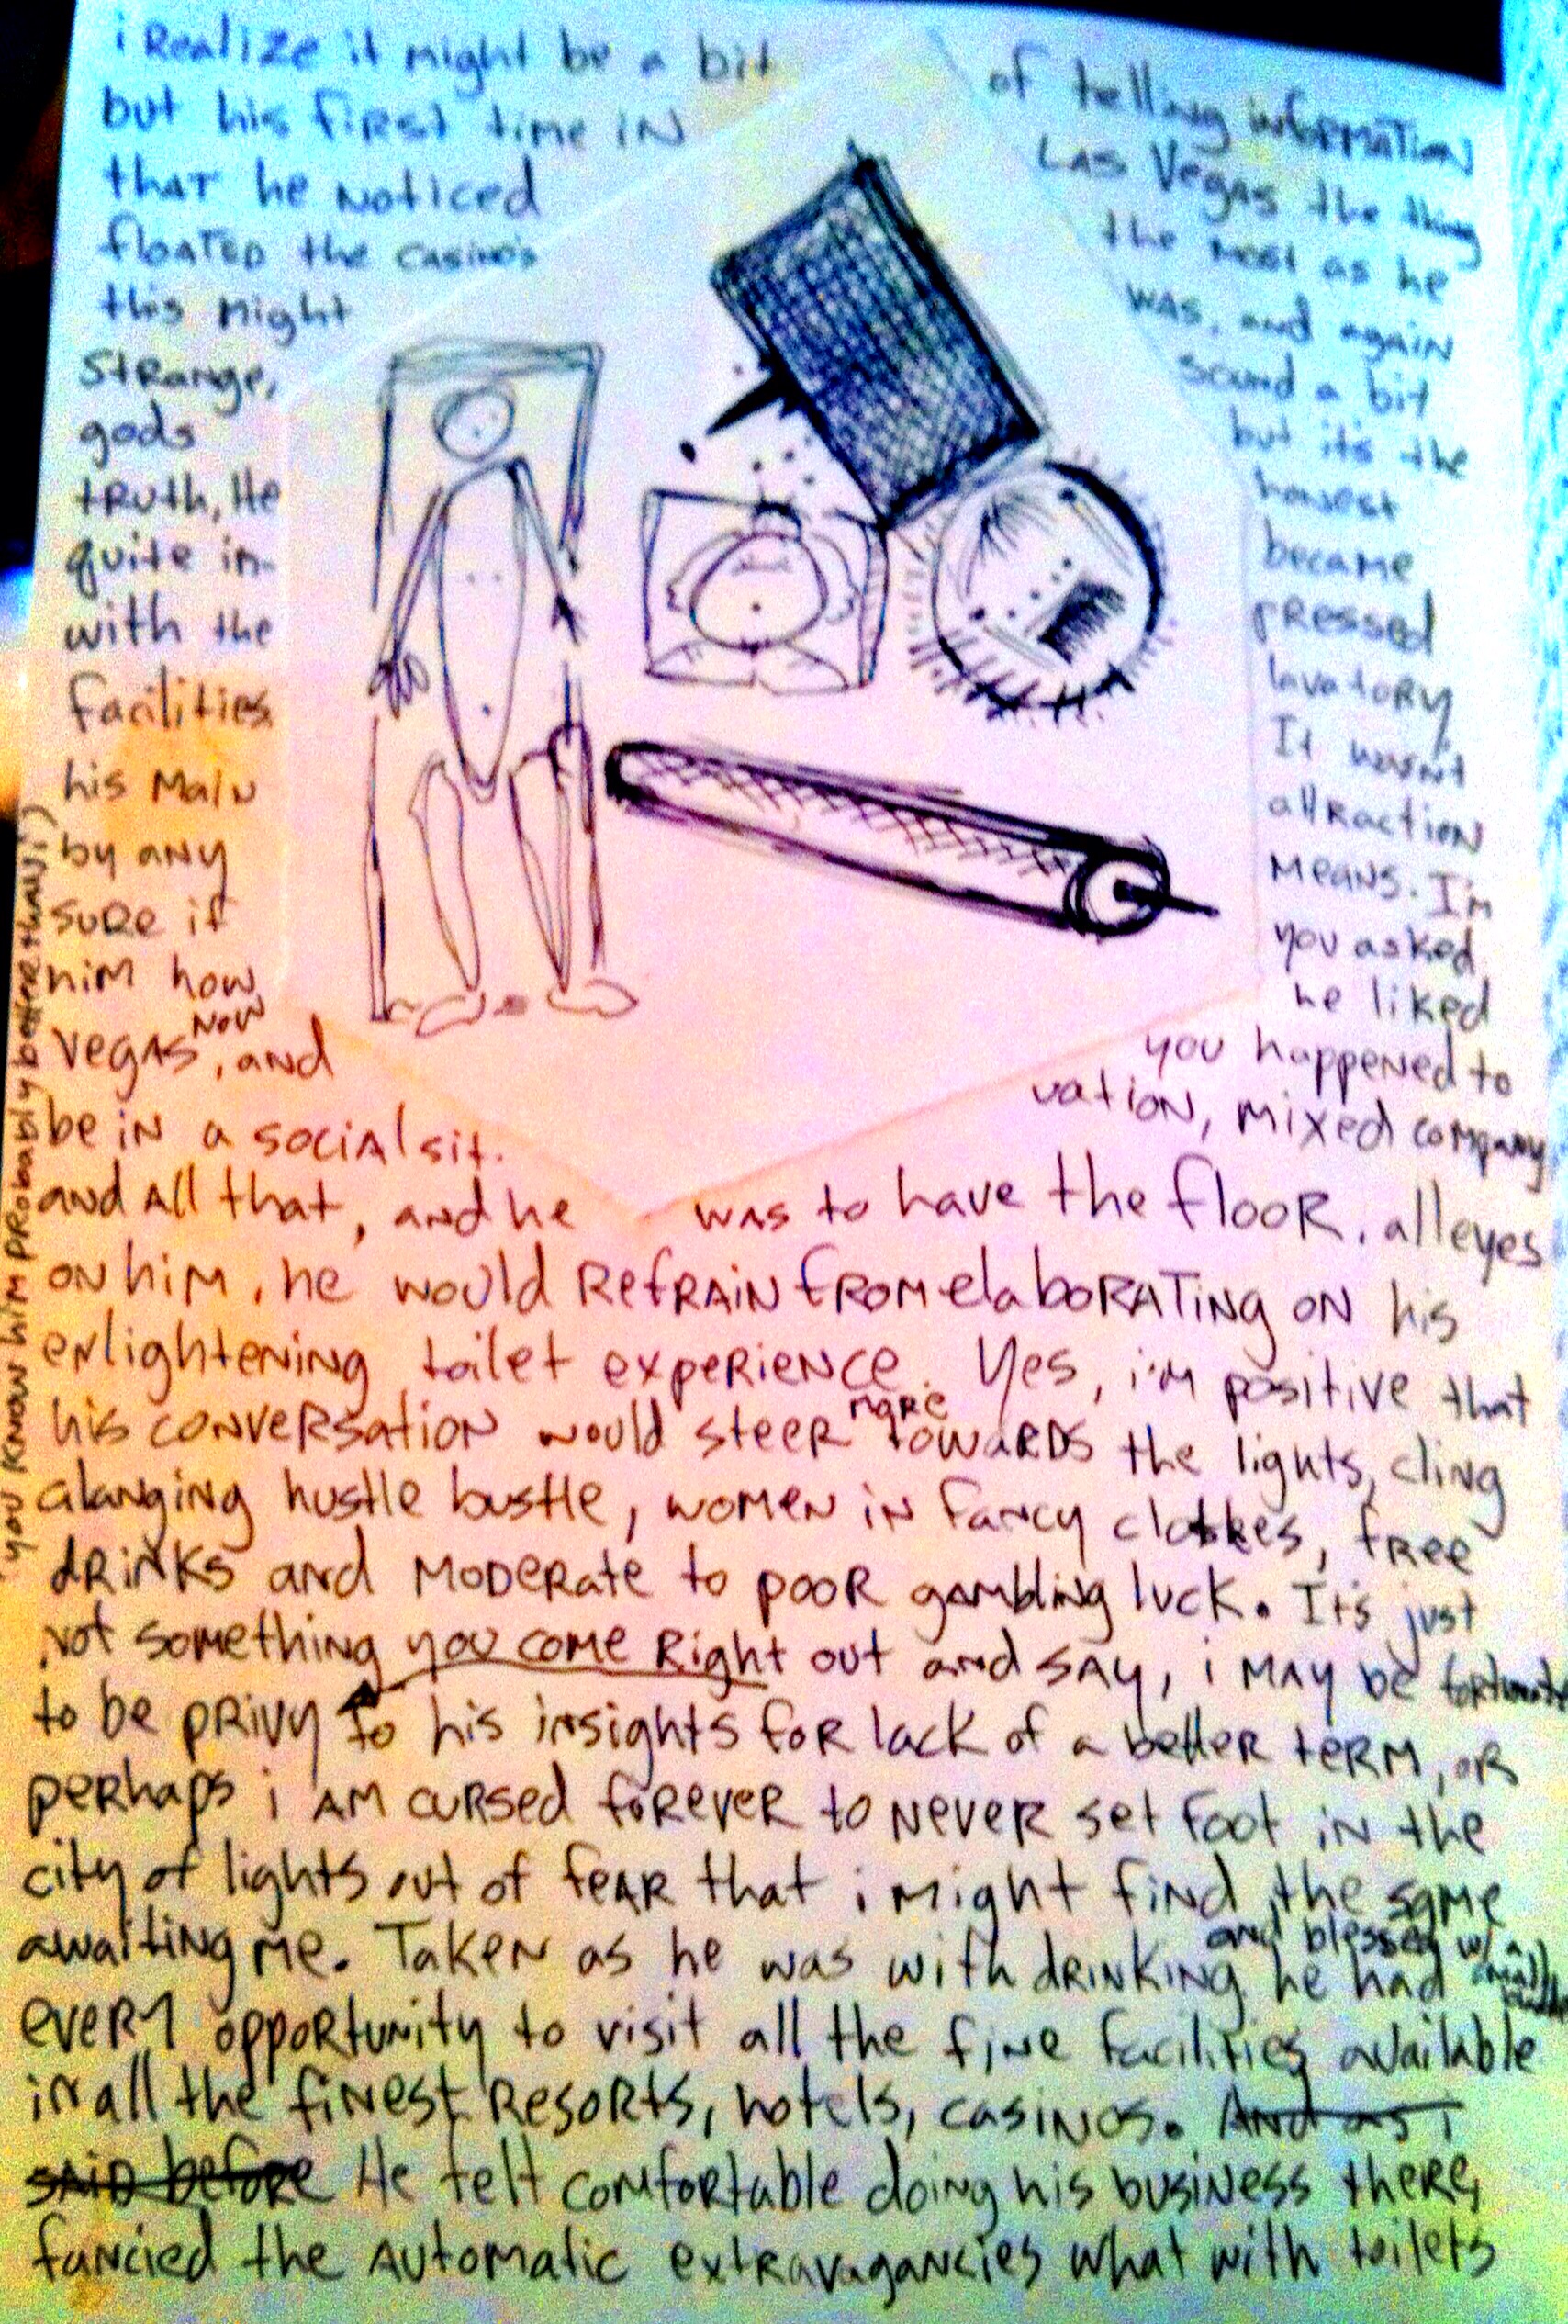 i Realize it might be a bit of telling information
but his first time in Las Vegas the thing
that he noticed the most as he
floated the casino's was, and again
this might sound a bit
strange, but it's the
gods honest
truth, He became
quite im- pressed
with the lavatory
facilities. It wasn't
his main attraction
by any means. I'm
sure if you asked
him how he liked
vegas now, and you happened to
be in a social sit. uation, mixed company
and all that, and he was to have the floor, all eyes
on him, he would refrain from elaborating on his
enlightening toilet experience. Yes, i'm positive that
his conversation would steer more towards the lights, cling
clanging hustle bustle, women in fancy clothes, free
drinks and moderate to poor gambling luck. It's just
not something you come right out and say, i may be fortunate
to be privy to his insights for lack of a better term, or
perhaps i am cursed forever to never set foot in the
city of lights out of fear that i might find the same
awaiting me. Taken as he was with drinking and blessed w/ a small he had
every opportunity to visit all the fine facilities available
in all the finest resorts, hotels, casinos. And as i
said before He felt comfortable doing his business there,
fancied the automatic extravagancies what with toilets
you know him probably better than i)